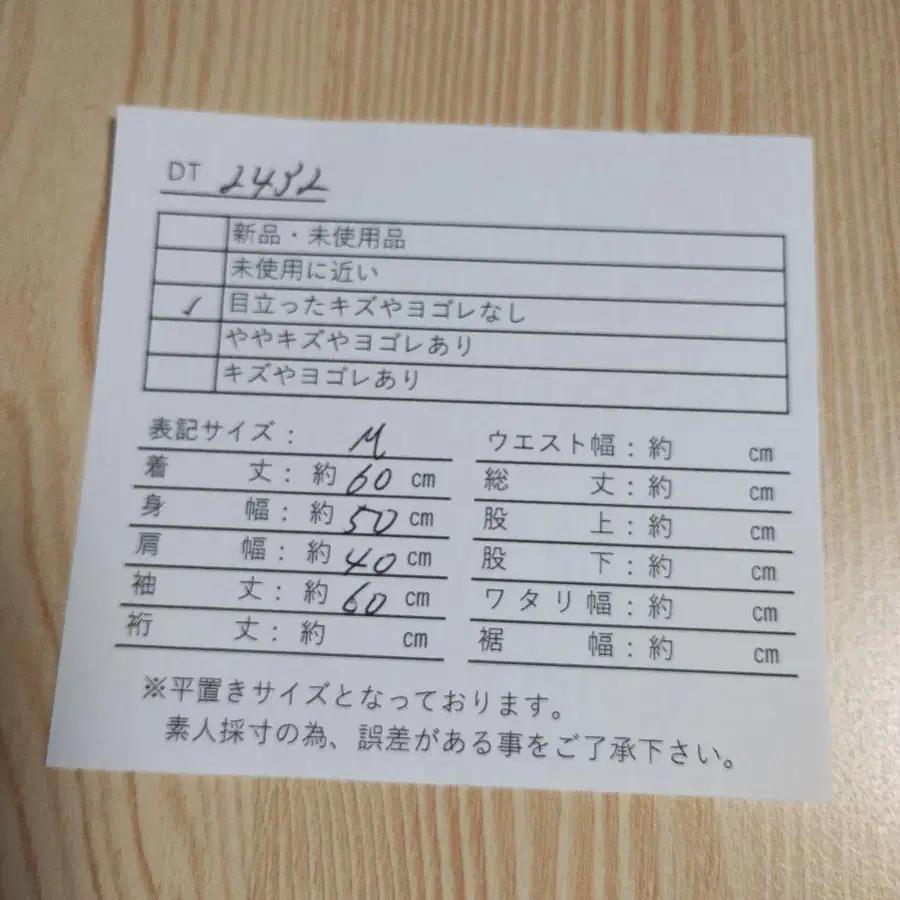 DT 2432
新品・未使用品
未使用に近い
✓ 目立ったキズやヨゴレなし
ややキズやヨゴレあり
キズやヨゴレあり
表記サイズ: M
着丈:約60cm
身幅:約50cm
肩幅:約40cm
袖丈:約60cm
裄丈:約 cm
ウエスト幅:約 cm
総丈:約 cm
股上:約 cm
股下:約 cm
ワタリ幅:約 cm
裾幅:約 cm
※平置きサイズとなっております。
素人採寸の為、誤差がある事をご了承下さい。